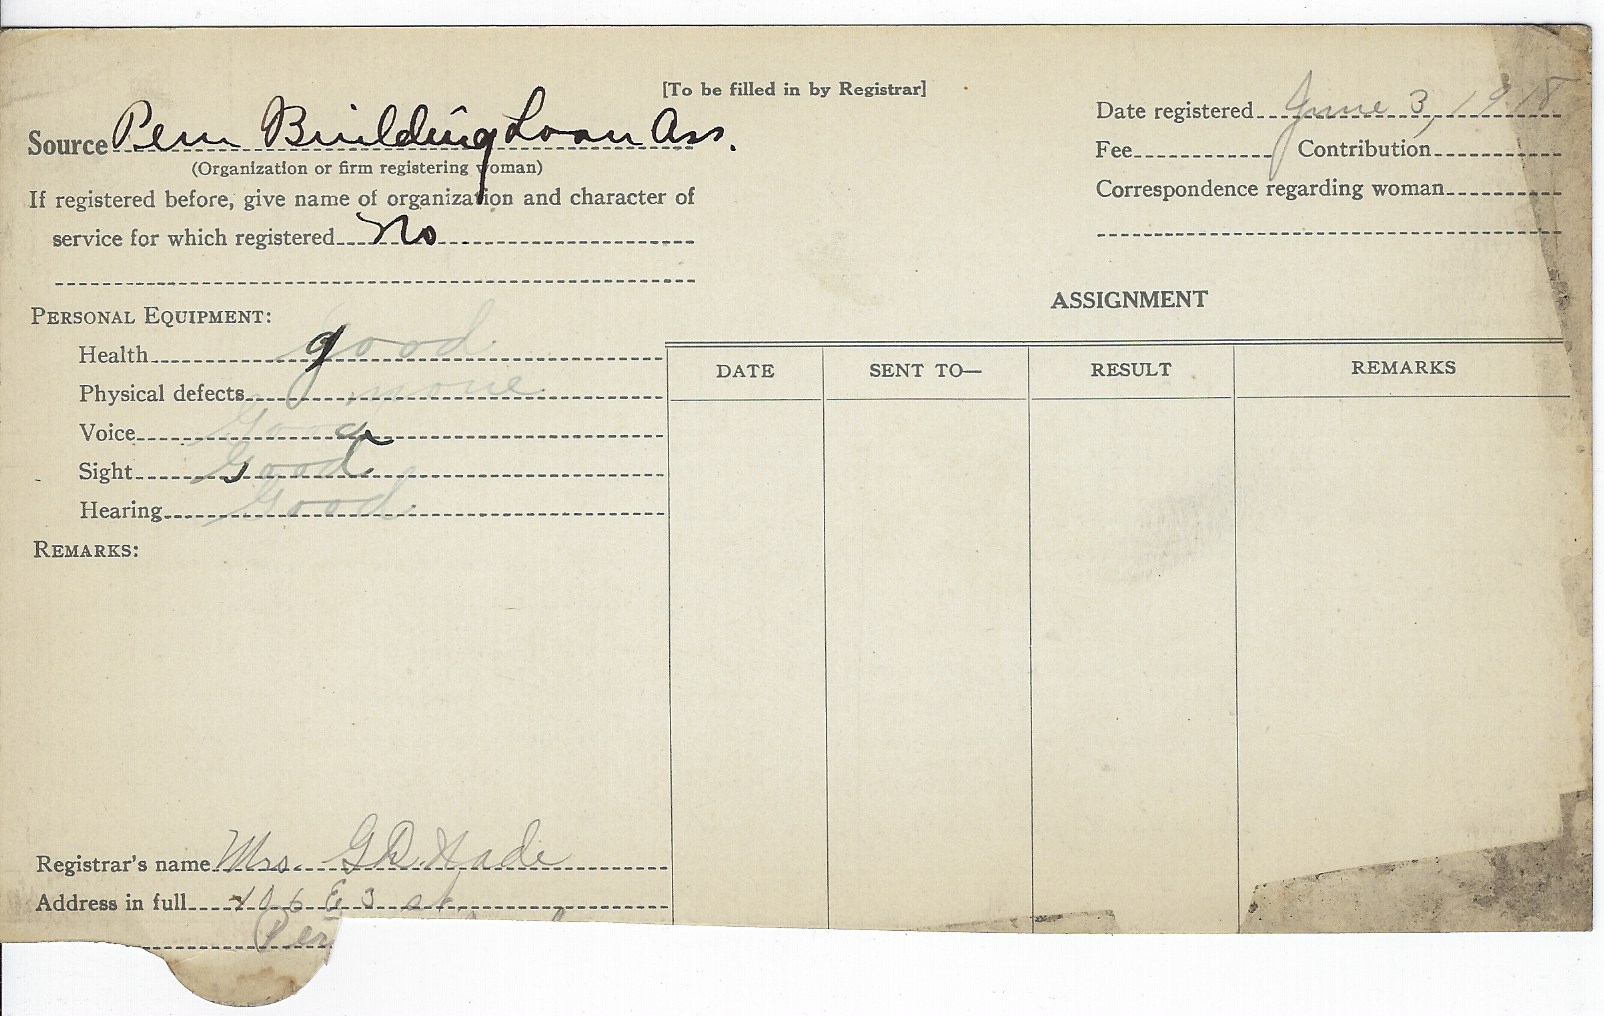 [To be filled in by Registrar]
Source Peru Building Loan Ass.
(Organization or firm registering woman)
If registered before, give name of organization and character of
service for which registered No
Date registered June 3, 1918
Fee Contribution
Correspondence regarding woman
PERSONAL EQUIPMENT:
Health good
Physical defects none
Voice Good
Sight Good
Hearing Good
REMARKS:
ASSIGNMENT
DATE SENT TO— RESULT REMARKS
Registrar's name Mrs. G.D.
Address in full 106 E 3 st.